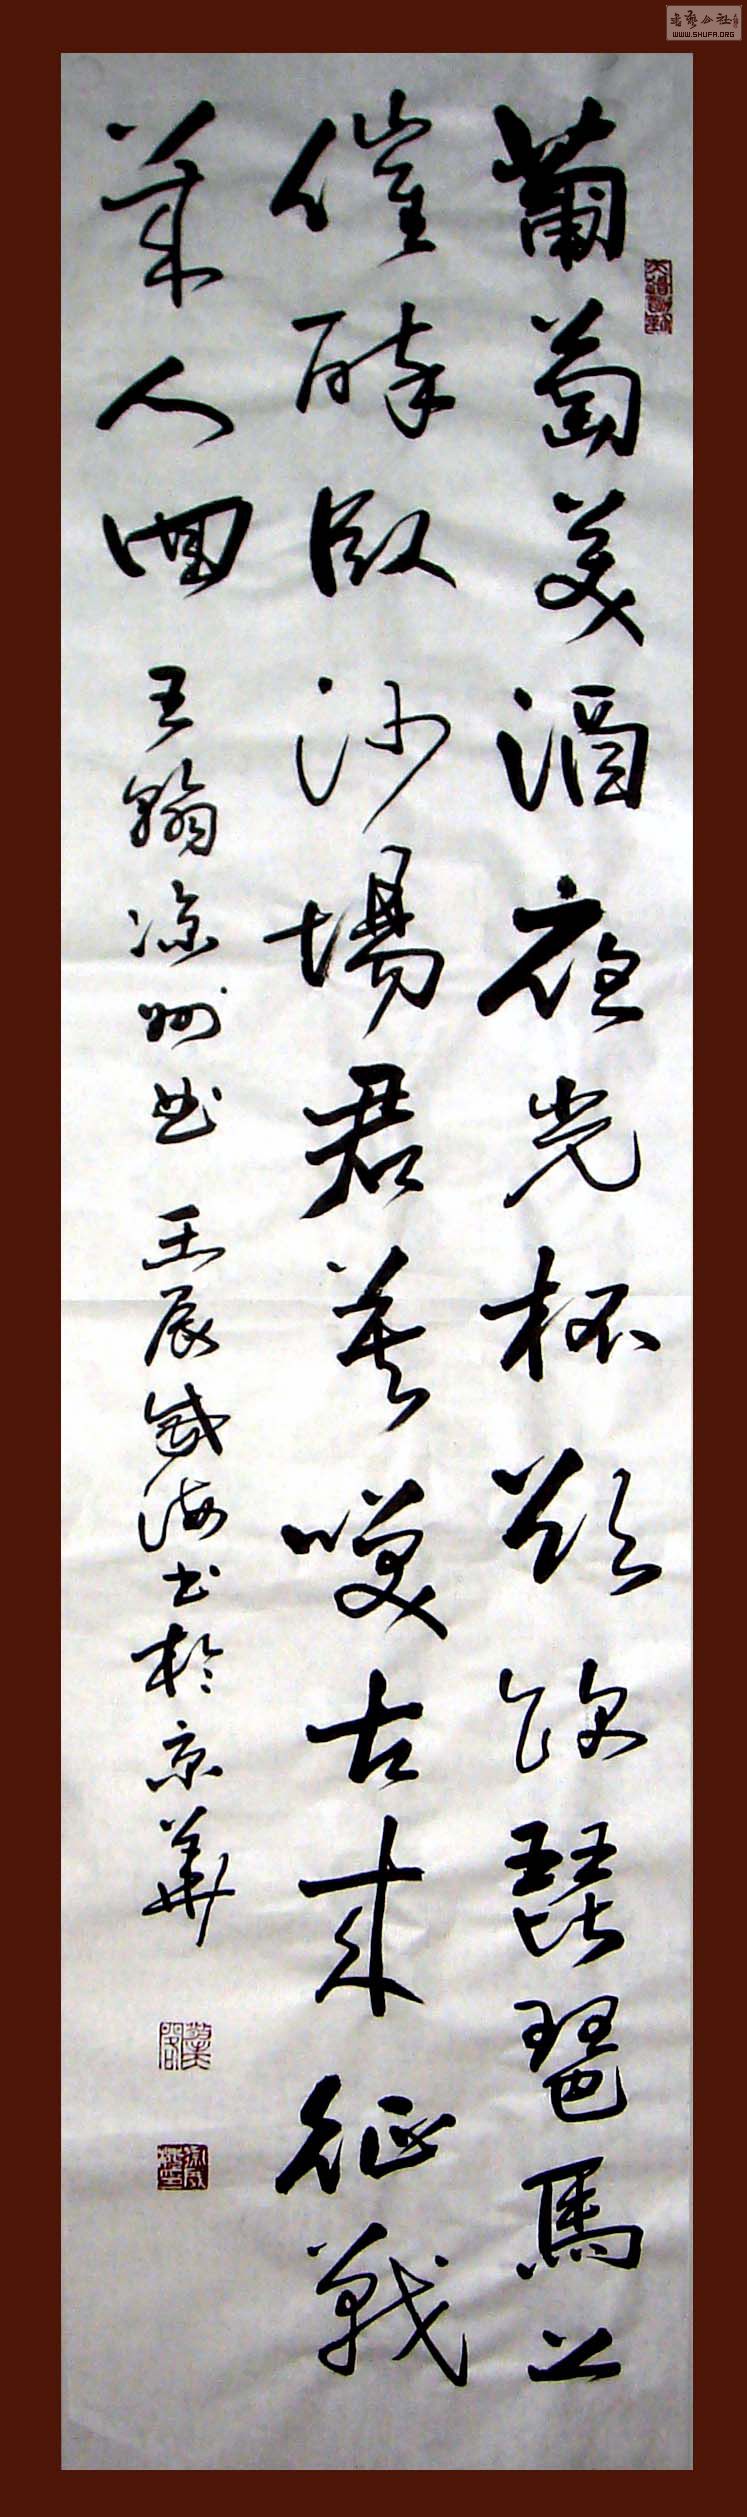 葡萄美酒夜光杯欲飲琵琶馬上
催醉臥沙場君莫嘆古來征戰
幾人回
王翰涼州曲 壬辰 海書於京華
書藝公社
WWW.SHUFA.ORG